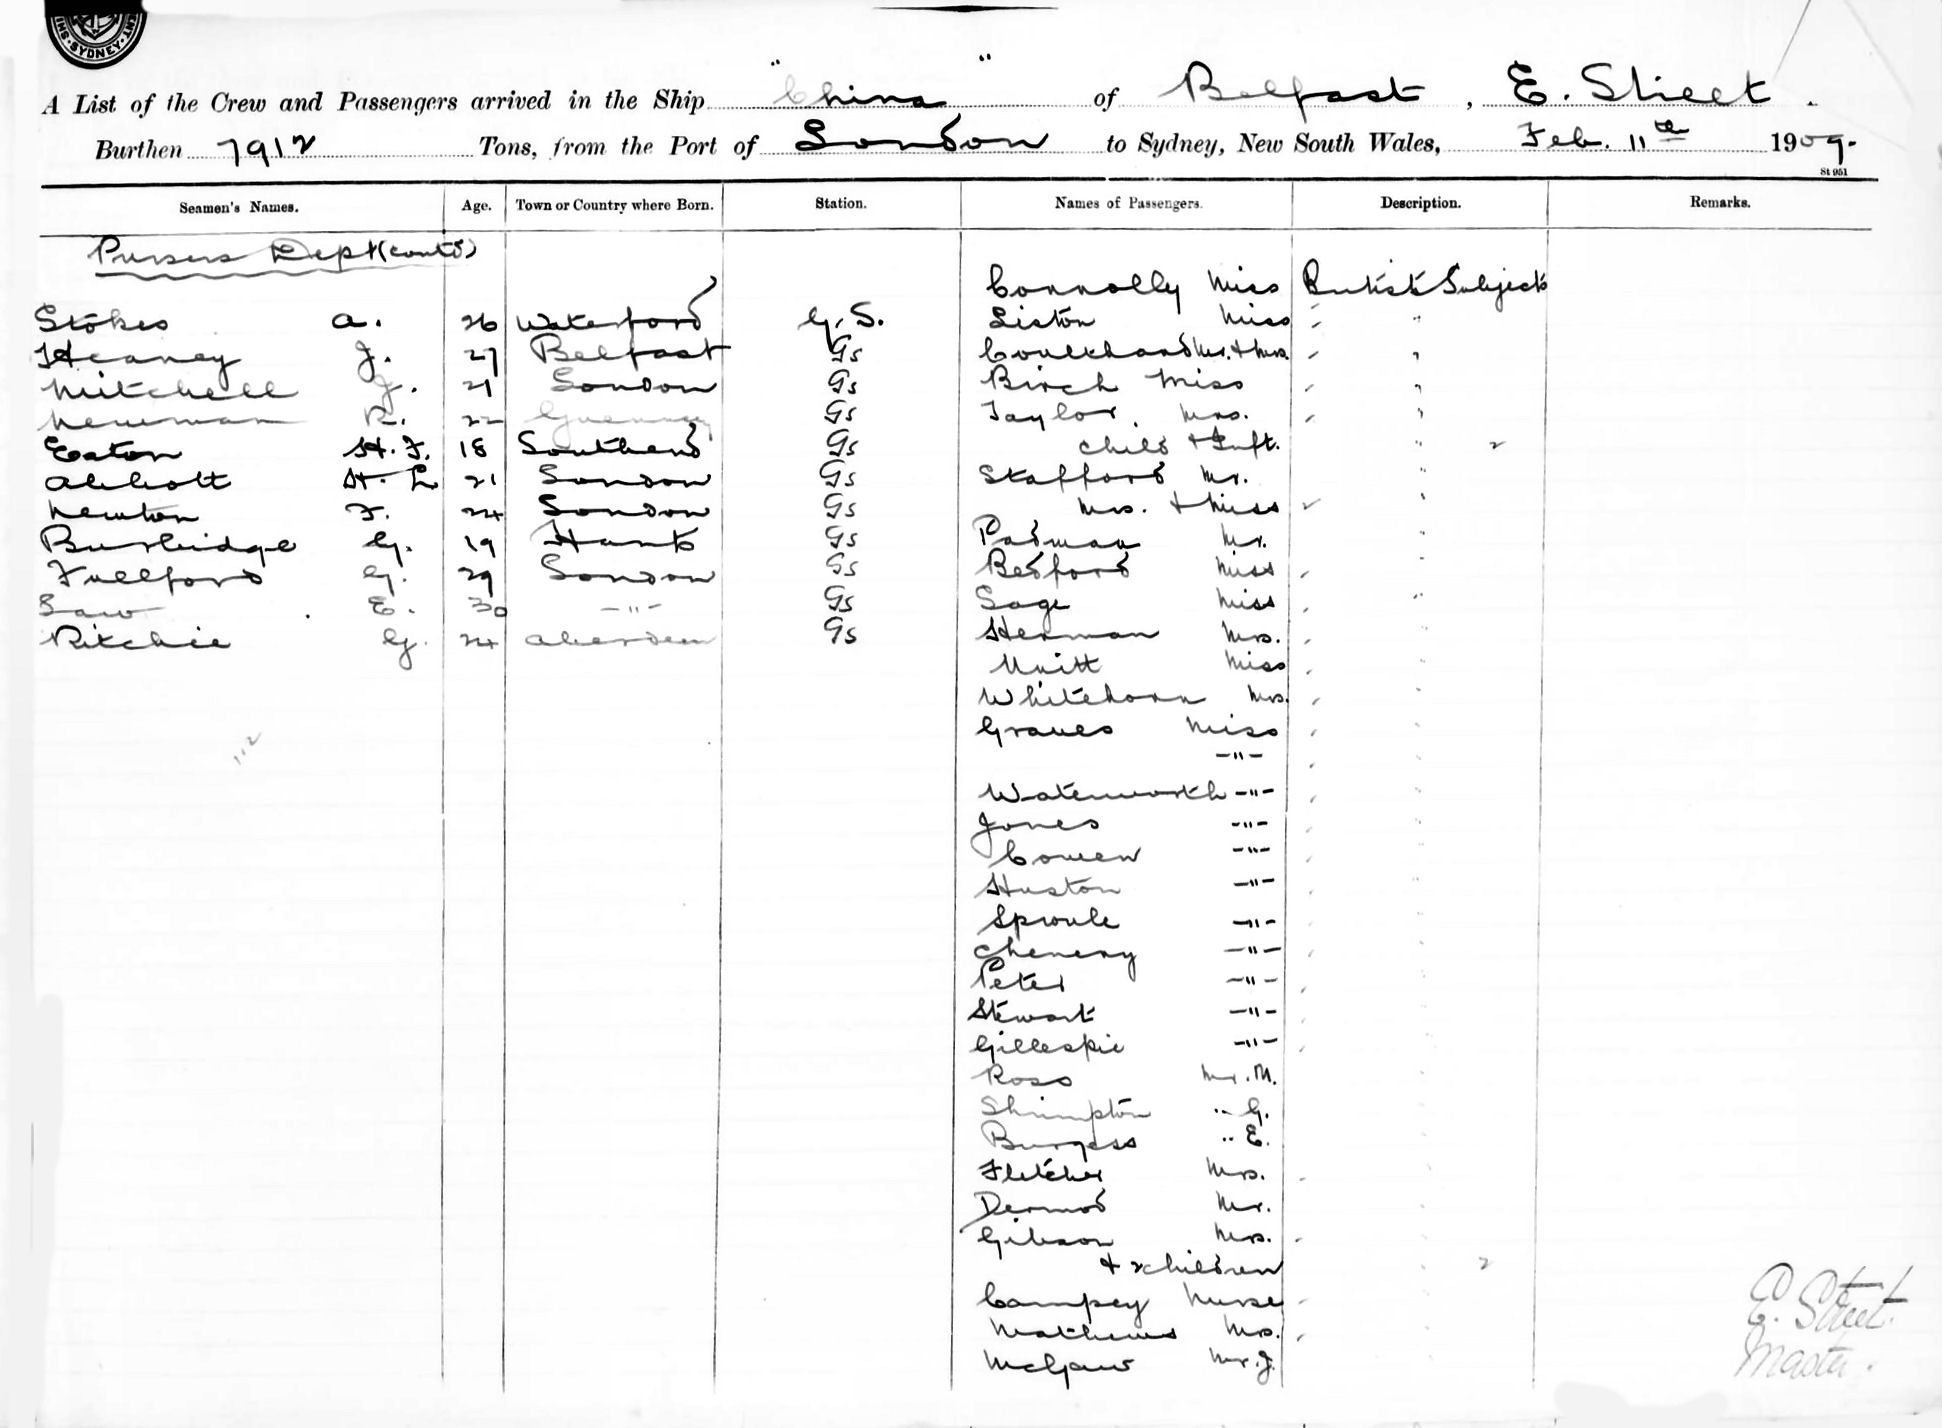 SYDNEY
A List of the Crew and Passengers arrived in the Ship "China" of Belfast, E. Street.
Burthen 7912 Tons, from the Port of London to Sydney, New South Wales, Feb. 11th 1909.
St 951
Seamen's Names. Age. Town or Country where Born. Station. Names of Passengers. Description. Remarks.
Pursers Dept (contd)
Connolly Miss British Subjects
Stokes A. 26 Waterford G.S. Liston Miss "
Heaney J. 27 Belfast Gs Coulthard Mr. & Mrs. "
Mitchell J. 21 London Gs Birch Miss "
Newman R. 22 Guernsey Gs Taylor Mrs. "
Eaton H. F. 18 Southend Gs child & Inft. " 2
Abbott H. L. 21 London Gs Stafford Mr. "
Newton F. 24 London Gs Mrs. & Miss "
Burbidge G. 19 Hants Gs Padman Mr. "
Fullford G. 29 London Gs Bedford Miss "
Law E. 30 -"- Gs Sage Miss "
Ritchie G. 24 Aberdeen Gs Herman Mrs. "
Miss "
Whitehorn Mrs. "
Graves Miss "
-"- "
Waterworth -"- "
Jones -"- "
Cowen -"- "
Huston -"- "
Sproule -"- "
Chenery -"- "
Peter -"- "
Stewart -"- "
Gillespie -"- "
Ross Mr. M. "
Shrimpton " G. "
Burgess " E. "
Fletcher Mrs. "
Dermod Mr. "
Gibson Mrs. "
& 2 children " 2
Campey Nurse "
Mathews Mrs. "
McGaw Mr. J. "
112
E. Street.
Master.